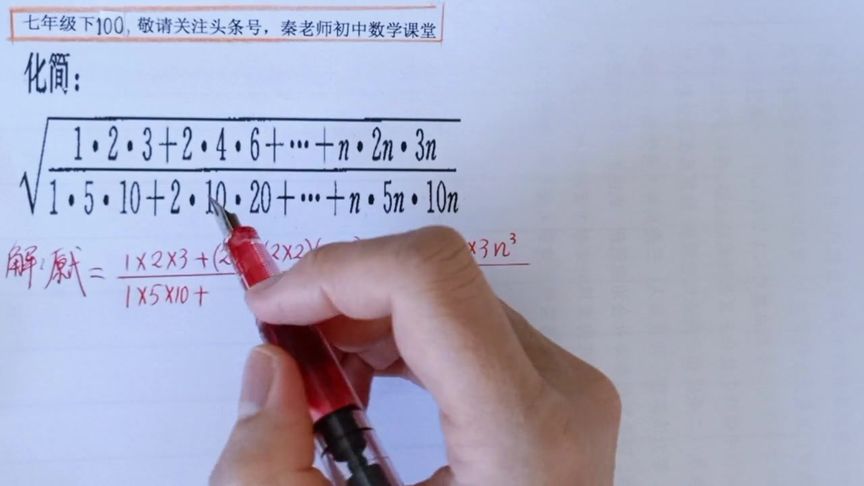 七年级下100,敬请关注头条号,秦老师初中数学课堂
化简:
√
1·2·3+2·4·6+…+n·2n·3n
1·5·10+2·10·20+…+n·5n·10n
解:原式= 1×2×3+(2 (2×2)( ×3n³
1×5×10+